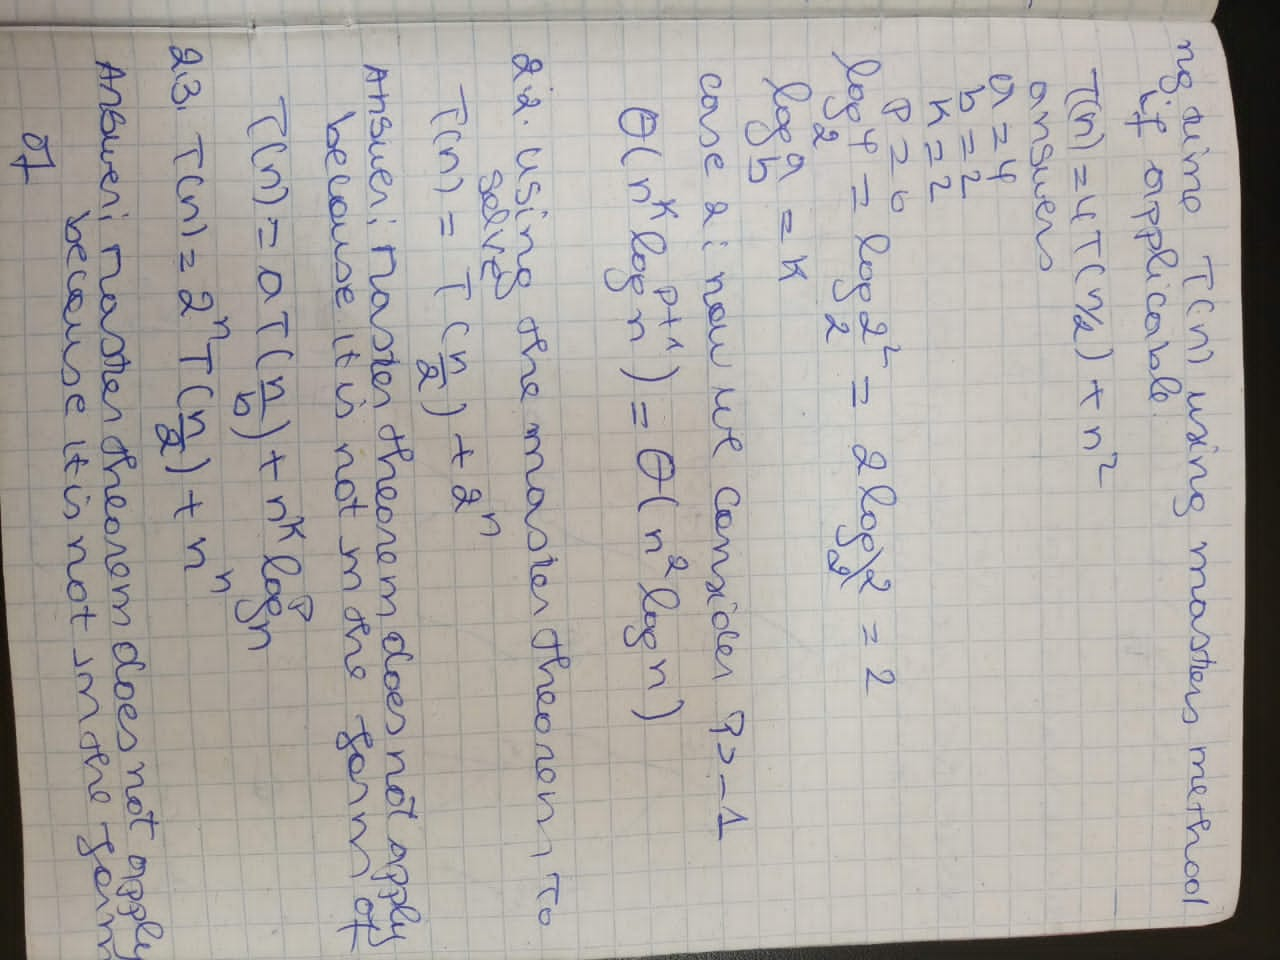 ng time T(n) using masters method
if applicable
T(n) = 4T(n/2) + n²
answers
a = 4
b = 2
k = 2
p = 0
log₂4 = log₂2² = 2log₂2 = 2
log_b a = k
case 2: now we consider p > -1
θ(n^k log^(p+1) n) = θ(n² log n)
22. using the master theorem, to
solve
T(n) = T(n/2) + 2^n
Answer: master theorem does not apply
because it is not in the form of
T(n) = aT(n/b) + n^k log^p n
23. T(n) = 2^n T(n/2) + n^n
Answer: master theorem does not apply
because it is not in the form
of